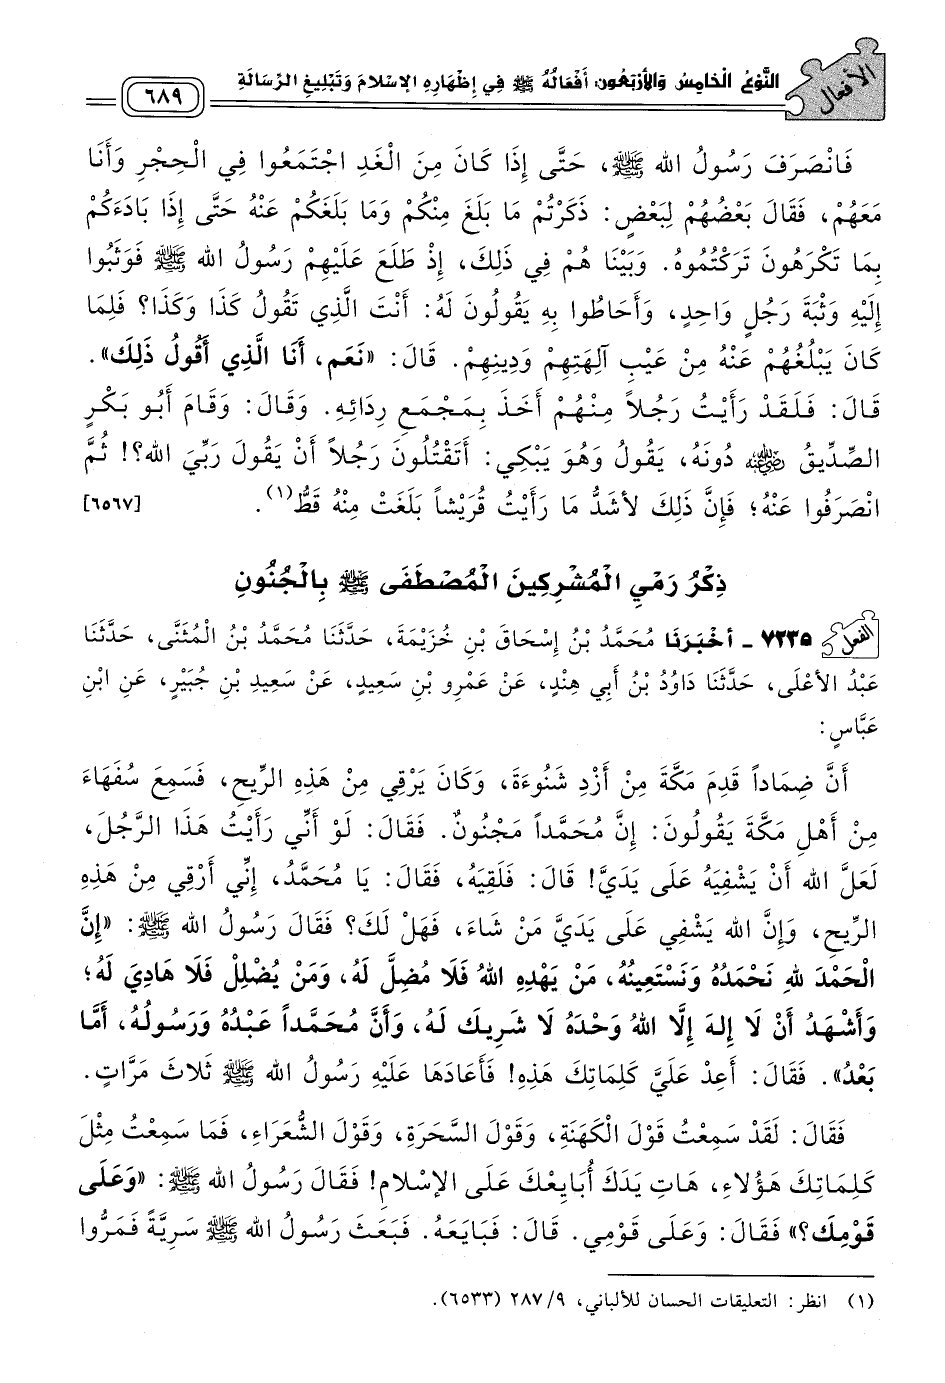 الأفعال
النَّوْعُ الْخَامِسُ وَالأَرْبَعُونَ: أَفْعَالُهُ ﷺ فِي إِظْهَارِهِ الإِسْلَامَ وَتَبْلِيغِ الرِّسَالَةِ
٦٨٩
فَانْصَرَفَ رَسُولُ الله ﷺ، حَتَّى إِذَا كَانَ مِنَ الْغَدِ اجْتَمَعُوا فِي الْحِجْرِ وَأَنَا
مَعَهُمْ، فَقَالَ بَعْضُهُمْ لِبَعْضٍ: ذَكَرْتُمْ مَا بَلَغَ مِنْكُمْ وَمَا بَلَغَكُمْ عَنْهُ حَتَّى إِذَا بَادَءَكُمْ
بِمَا تَكْرَهُونَ تَرَكْتُمُوهُ. وَبَيْنَا هُمْ فِي ذَلِكَ، إِذْ طَلَعَ عَلَيْهِمْ رَسُولُ الله ﷺ فَوَثَبُوا
إِلَيْهِ وَثْبَةَ رَجُلٍ وَاحِدٍ، وَأَحَاطُوا بِهِ يَقُولُونَ لَهُ: أَنْتَ الَّذِي تَقُولُ كَذَا وَكَذَا؟ فَلِمَا
كَانَ يَبْلُغُهُمْ عَنْهُ مِنْ عَيْبِ آلِهَتِهِمْ وَدِينِهِمْ. قَالَ: «نَعَم، أَنَا الَّذِي أَقُولُ ذَلِكَ».
قَالَ: فَلَقَدْ رَأَيْتُ رَجُلاً مِنْهُمْ أَخَذَ بِمَجْمَعِ رِدَائِهِ. وَقَالَ: وَقَامَ أَبُو بَكْرٍ
الصِّدِّيقُ رضي الله عنه دُونَهُ، يَقُولُ وَهُوَ يَبْكِي: أَتَقْتُلُونَ رَجُلاً أَنْ يَقُولَ رَبِّيَ الله؟! ثُمَّ
انْصَرَفُوا عَنْهُ؛ فَإِنَّ ذَلِكَ لأشَدُّ مَا رَأَيْتُ قُرَيْشاً بَلَغَتْ مِنْهُ قَطُّ(١). [٦٥٦٧]
ذِكْرُ رَمْيِ الْمُشْرِكِينَ الْمُصْطَفَى ﷺ بِالْجُنُونِ
الفعل ٧٢٣٥ - أخْبَرَنَا مُحَمَّدُ بْنُ إِسْحَاقَ بْنِ خُزَيْمَةَ، حَدَّثَنَا مُحَمَّدُ بْنُ الْمُثَنَّى، حَدَّثَنَا
عَبْدُ الأعْلَى، حَدَّثَنَا دَاوُدُ بْنُ أَبِي هِنْدٍ، عَنْ عَمْرِو بْنِ سَعِيدٍ، عَنْ سَعِيدِ بْنِ جُبَيْرٍ، عَنِ ابْنِ
عَبَّاسٍ:
أَنَّ ضِمَاداً قَدِمَ مَكَّةَ مِنْ أَزْدِ شَنُوءَةَ، وَكَانَ يَرْقِي مِنْ هَذِهِ الرِّيحِ، فَسَمِعَ سُفَهَاءَ
مِنْ أَهْلِ مَكَّةَ يَقُولُونَ: إِنَّ مُحَمَّداً مَجْنُونٌ. فَقَالَ: لَوْ أَنِّي رَأَيْتُ هَذَا الرَّجُلَ،
لَعَلَّ الله أَنْ يَشْفِيَهُ عَلَى يَدَيَّ! قَالَ: فَلَقِيَهُ، فَقَالَ: يَا مُحَمَّدُ، إِنِّي أَرْقِي مِنْ هَذِهِ
الرِّيحِ، وَإِنَّ الله يَشْفِي عَلَى يَدَيَّ مَنْ شَاءَ، فَهَلْ لَكَ؟ فَقَالَ رَسُولُ الله ﷺ: «إِنَّ
الْحَمْدَ لله نَحْمَدُهُ وَنَسْتَعِينُهُ، مَنْ يَهْدِهِ اللهُ فَلَا مُضِلَّ لَهُ، وَمَنْ يُضْلِلْ فَلَا هَادِيَ لَهُ؛
وَأَشْهَدُ أَنْ لَا إِلهَ إِلَّا اللهُ وَحْدَهُ لَا شَرِيكَ لَهُ، وَأَنَّ مُحَمَّداً عَبْدُهُ وَرَسُولُهُ، أَمَّا
بَعْدُ». فَقَالَ: أَعِدْ عَلَيَّ كَلِمَاتِكَ هَذِهِ! فَأَعَادَهَا عَلَيْهِ رَسُولُ الله ﷺ ثَلَاثَ مَرَّاتٍ.
فَقَالَ: لَقَدْ سَمِعْتُ قَوْلَ الْكَهَنَةِ، وَقَوْلَ السَّحَرَةِ، وَقَوْلَ الشُّعَرَاءِ، فَمَا سَمِعْتُ مِثْلَ
كَلِمَاتِكَ هَؤُلَاءِ، هَاتِ يَدَكَ أُبَايِعْكَ عَلَى الإسْلامِ! فَقَالَ رَسُولُ الله ﷺ: «وَعَلَى
قَوْمِكَ؟» فَقَالَ: وَعَلَى قَوْمِي. قَالَ: فَبَايَعَهُ. فَبَعَثَ رَسُولُ الله ﷺ سَرِيَّةً فَمَرُّوا
(١) انظر: التعليقات الحسان للألباني، ٢٨٧/٩ (٦٥٣٣).